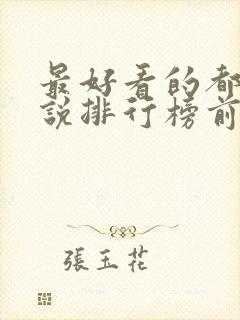 最好看的都
說排行榜前
張玉花